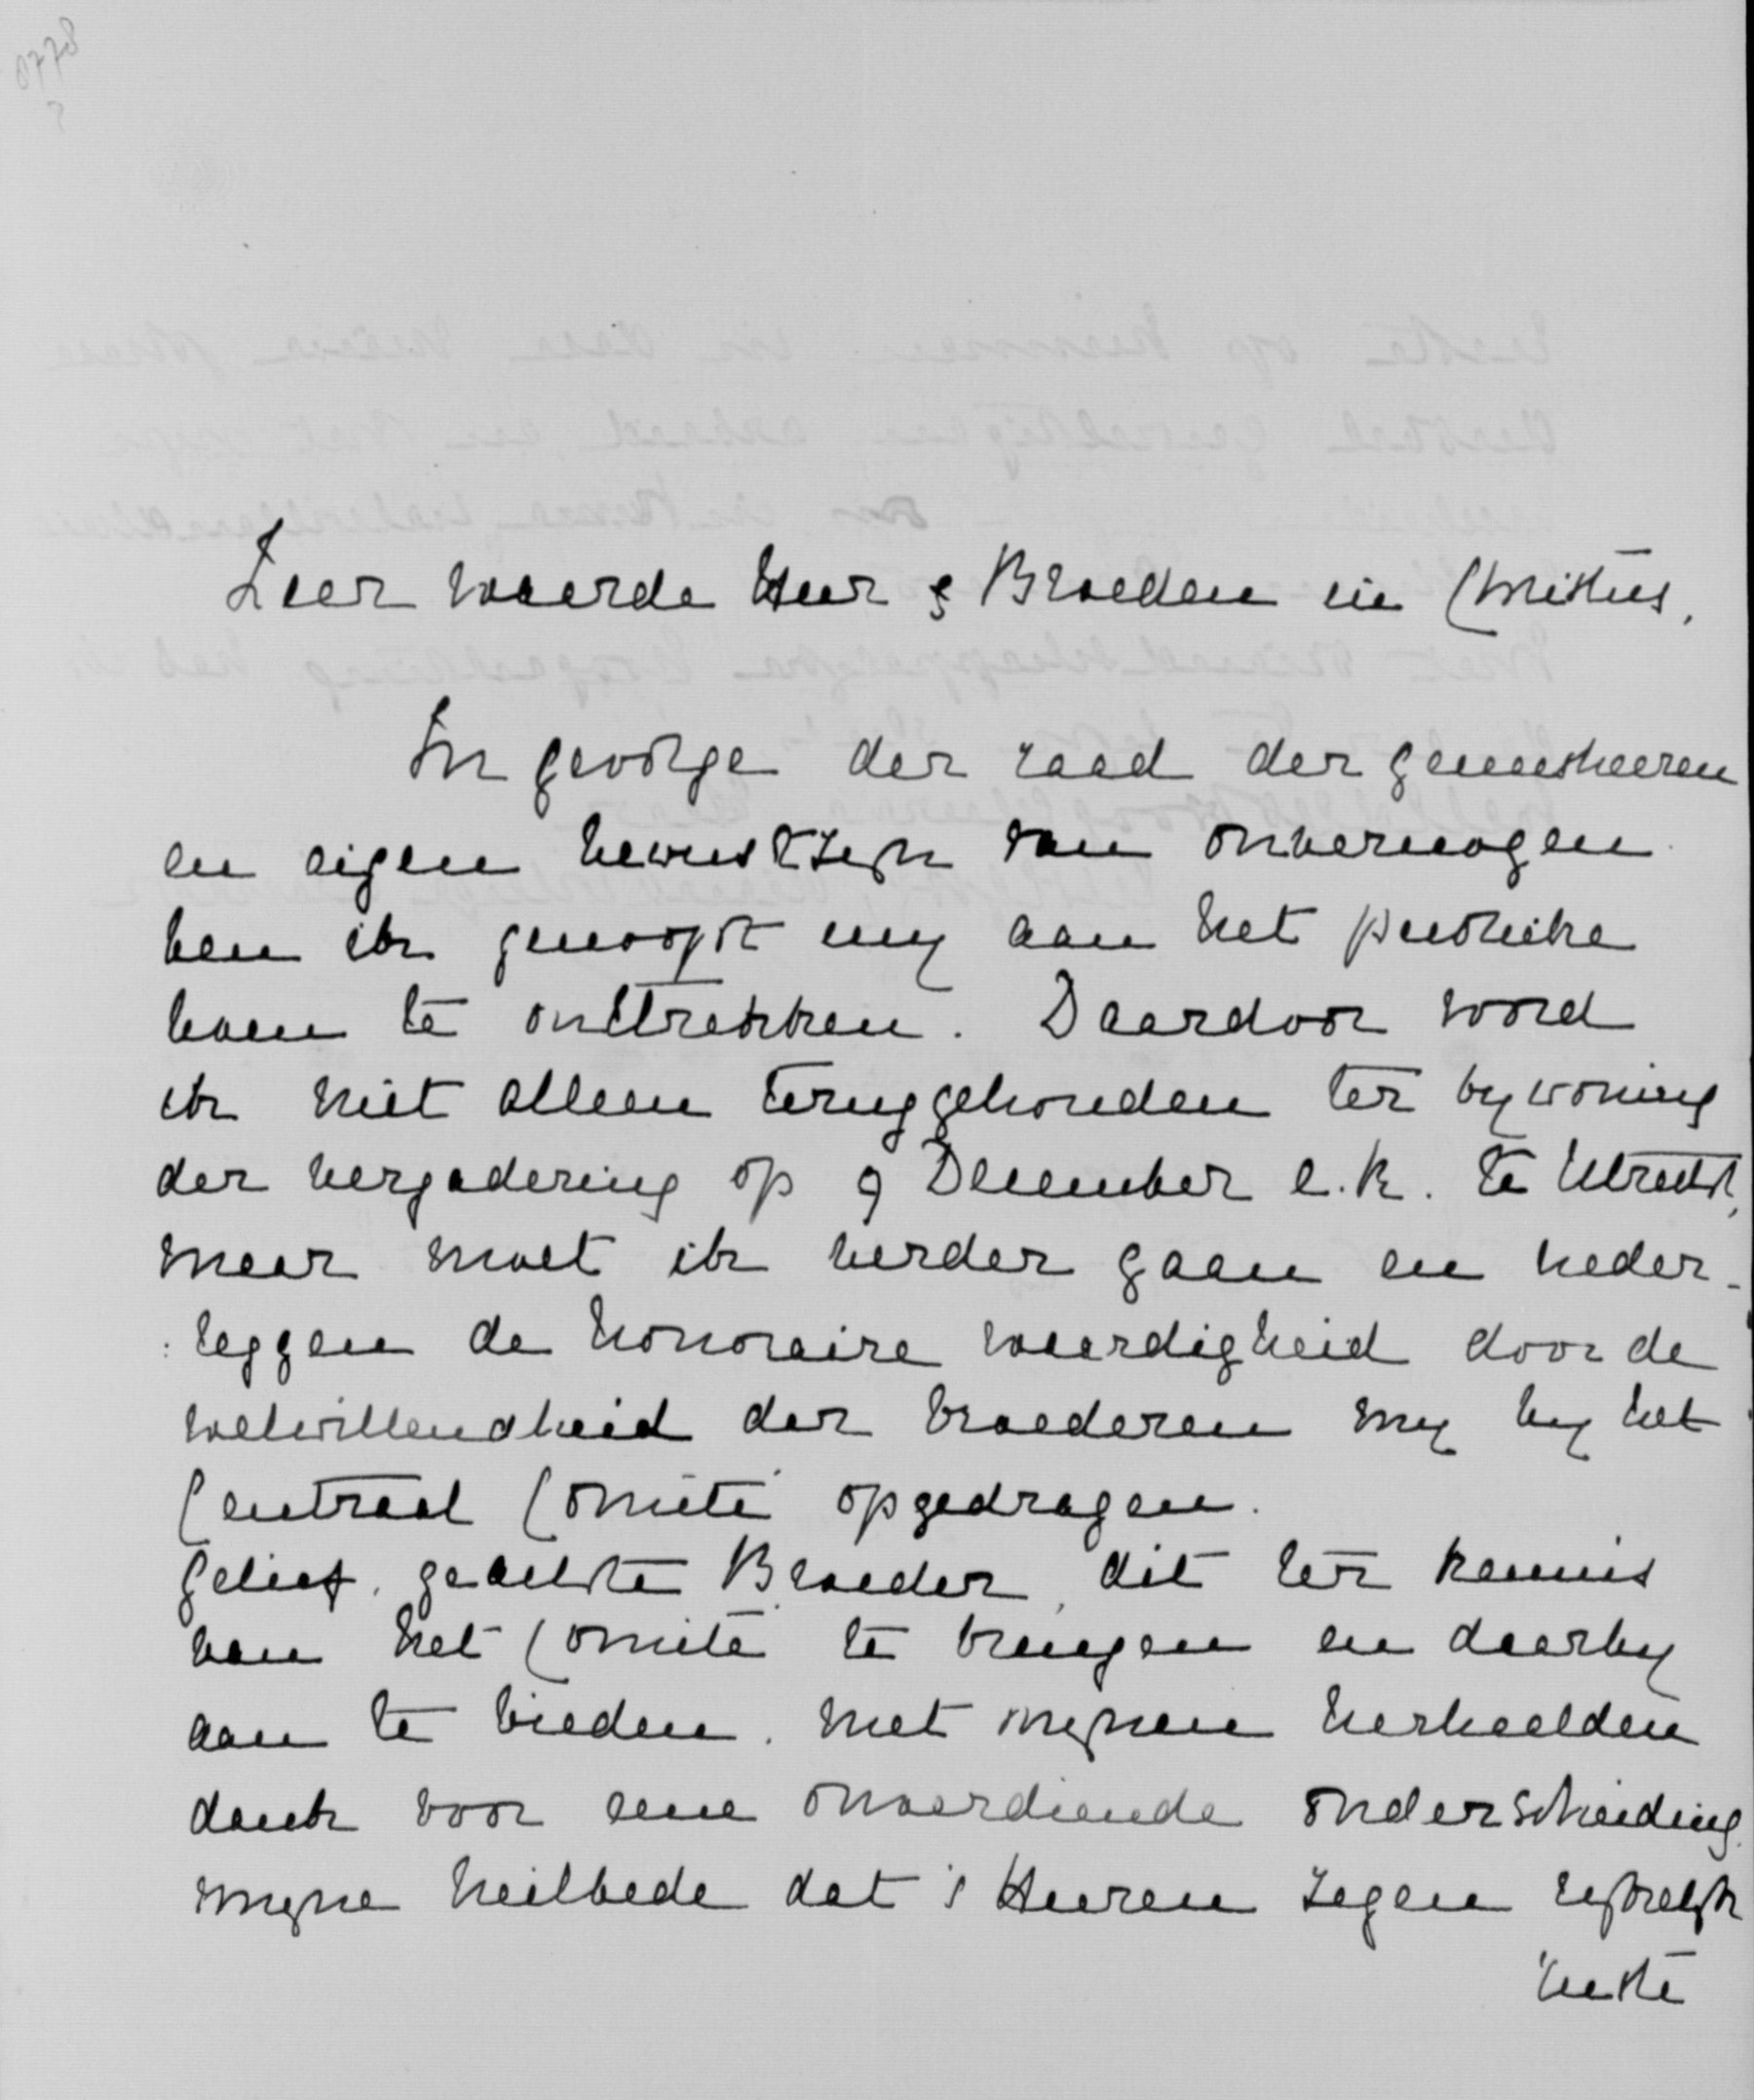 0778
?
Zeer waarde Heer & Broeder in Christus,
In gevolge der raad der geneesheeren
en eigen bewustzijn van onvermogen
ben ik genoopt mij aan het publieke
leven te onttrekken. Daardoor word
ik niet alleen teruggehouden ter bywoning
der vergadering op 9 December e.k. te Utrecht,
maar moet ik verder gaan en neder-
leggen de honoraire waardigheid door de
welwillendheid der broederen my by het
Centraal Comité opgedragen.
Gelief, geachte Broeder, dit ter kennis
van het Comité te brengen en daarby
aan te bieden, met mynen herhaalden
dank voor eene onverdiende onderscheiding,
myne heilbede dat 's Heeren zegen rijkelijk
ruste